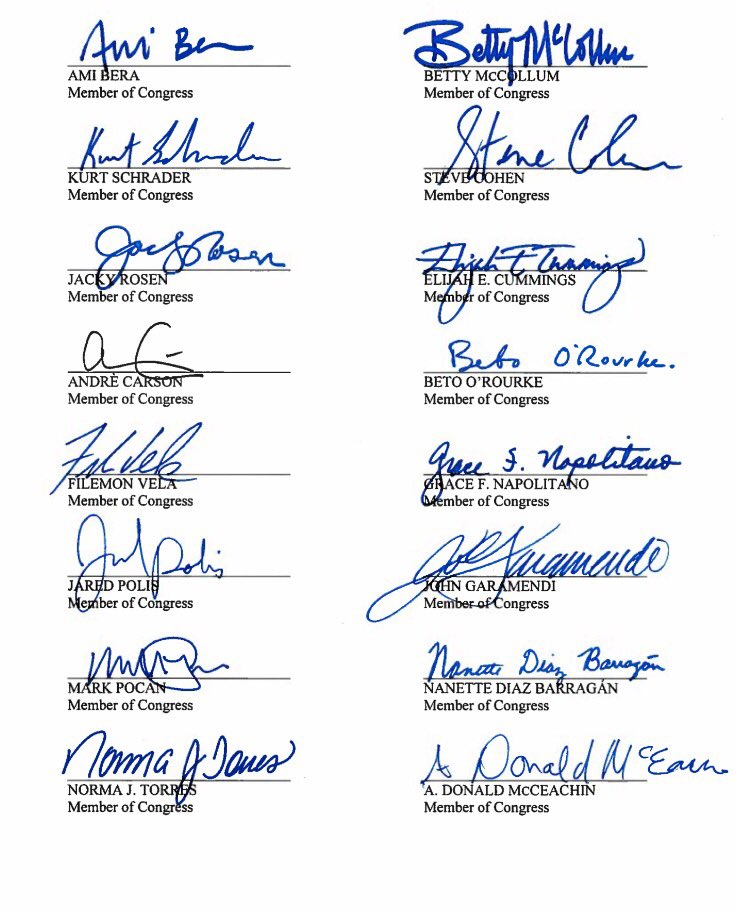 Ami Bera
AMI BERA
Member of Congress
Betty McCollum
BETTY McCOLLUM
Member of Congress
Kurt Schrader
KURT SCHRADER
Member of Congress
Steve Cohen
STEVE COHEN
Member of Congress
Jacky Rosen
JACKY ROSEN
Member of Congress
Elijah E Cummings
ELIJAH E. CUMMINGS
Member of Congress
ANDRÈ CARSON
Member of Congress
Beto O'Rourke.
BETO O'ROURKE
Member of Congress
Fil Vela
FILEMON VELA
Member of Congress
Grace F. Napolitano
GRACE F. NAPOLITANO
Member of Congress
Jared Polis
JARED POLIS
Member of Congress
John Garamendi
JOHN GARAMENDI
Member of Congress
MARK POCAN
Member of Congress
Nanette Diaz Barragán
NANETTE DIAZ BARRAGÁN
Member of Congress
Norma J Torres
NORMA J. TORRES
Member of Congress
A Donald McEachin
A. DONALD McCEACHIN
Member of Congress